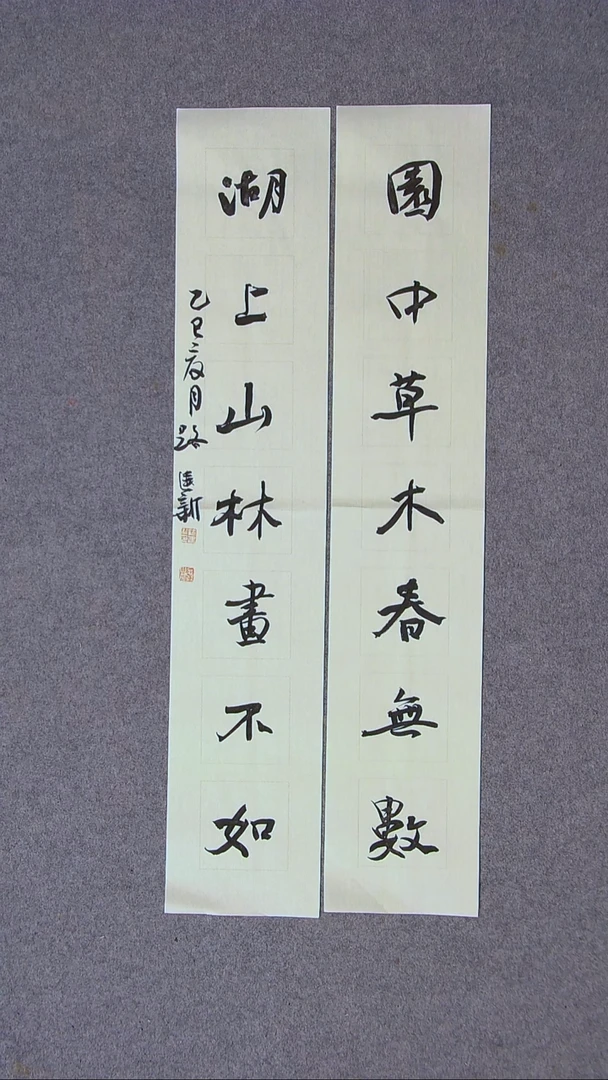 園中草木春無數
湖上山林畫不如
乙巳二月路
新